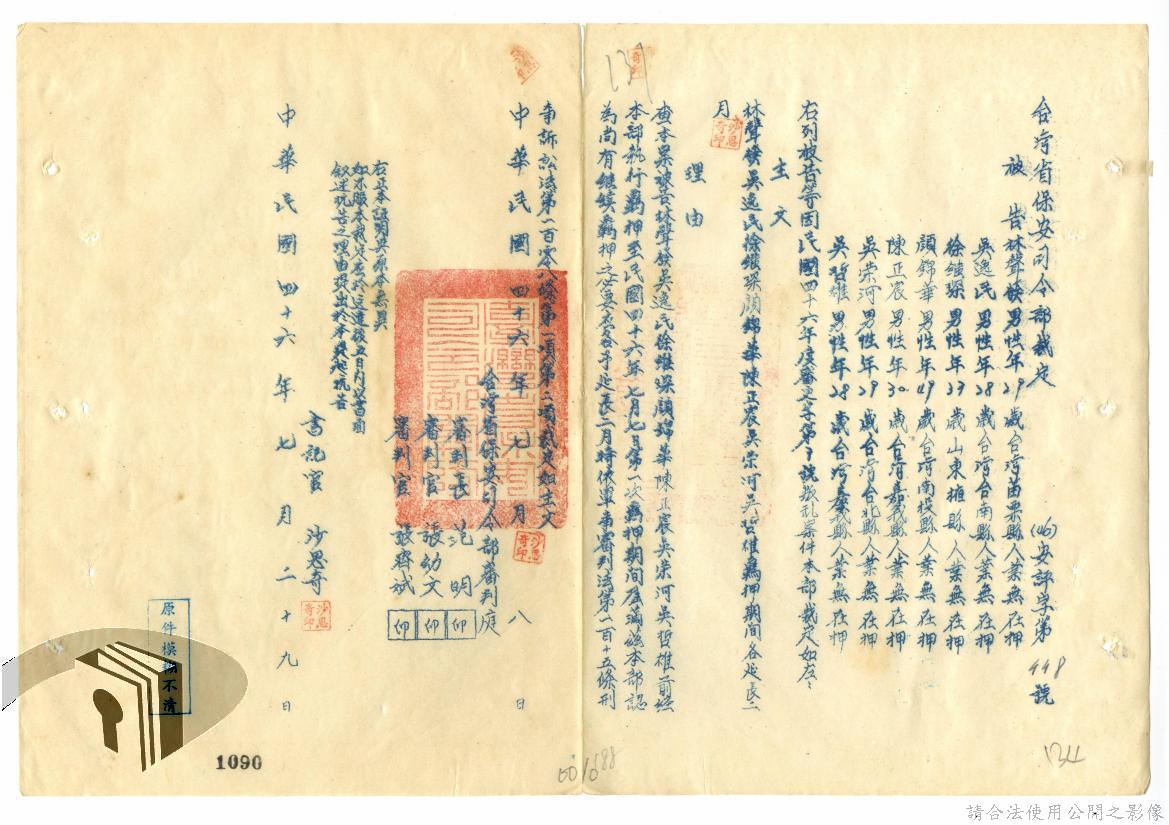 台灣省保安司令部裁定
(46)安評字第448號
被告 林聲發 男性年29歲台灣苗栗縣人業無在押
吳逸民 男性年28歲台灣台南縣人業無在押
徐繼琛 男性年37歲山東掖縣人業無在押
顏錦華 男性年49歲台灣南投縣人業無在押
陳正宸 男性年30歲台灣嘉義縣人業無在押
吳崇河 男性年29歲台灣台北縣人業無在押
吳哲雄 男性年28歲台灣嘉義縣人業無在押
右列被告等因民國四十六年度審更字第 號叛亂案件本部裁定如左:
主文
林聲發吳逸民徐繼琛顏錦華陳正宸吳崇河吳哲雄羈押期間各延長二
月
理由
查本案被告林聲發吳逸民徐繼琛顏錦華陳正宸吳崇河吳哲雄前經
本部執行羈押至民國四十六年七月七日第一次羈押期間屆滿茲本部認
為尚有繼續羈押之必要應各予延長二月特依軍事審判法第一百十五條刑
事訴訟法第一百零八條第一項第二項裁定如主文
中華民國四十六年七月八日
台灣省保安司令部審判庭
審判長 范明
審判官 張幼文
審判官 張齊斌
印
印
印
右正本證明與原本無異
如不服本裁定應於送達後五日內以書面
敘述抗告之理由提出於本部抗告
書記官 沙思奇
中華民國四十六年七月二十九日
沙思奇印
原件模糊不清
1090
134
請合法使用公開之影像